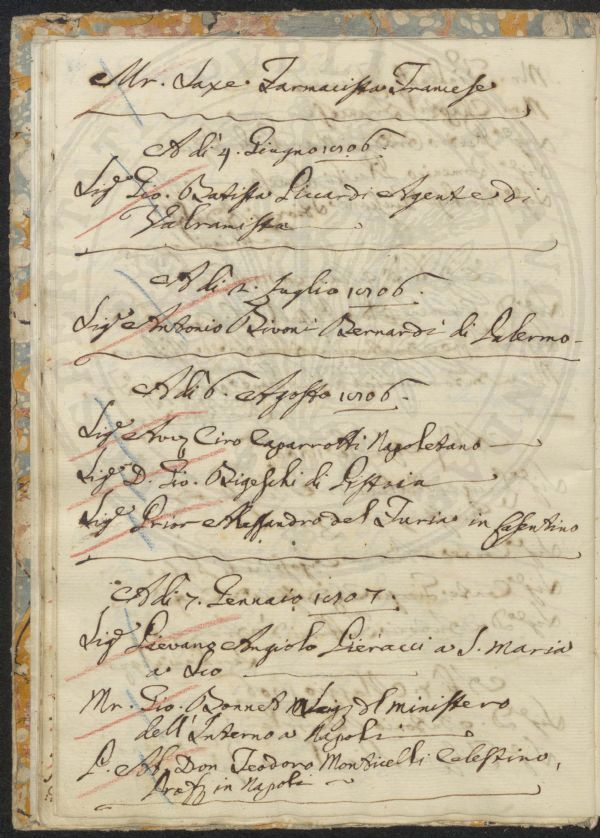 Mr. Saxe Farmacista Francese
A dì 4. Giugno 1806.
Sig.r Gio. Batista Siccardi Agente di
Valtramista
A dì 2. Luglio 1806.
Sig.r Antonio Bivoni Bernardi di Palermo
A dì 6. Agosto 1806.
Sig.r Avv. Ciro Caparrotti Napoletano
Sig.r D. Gio. Bigeschi di Pistoia
Sig.r Prior Alessandro del Turia in Casentino
A dì 7. Gennaio 1807.
Sig.r Pievano Angiolo Pieracci a S. Maria
a
Mr. Gio. Bonnet del ministero
dell'Interno a Napoli
P. Ab. Don Teodoro Monticelli Celestino,
Prof. in Napoli